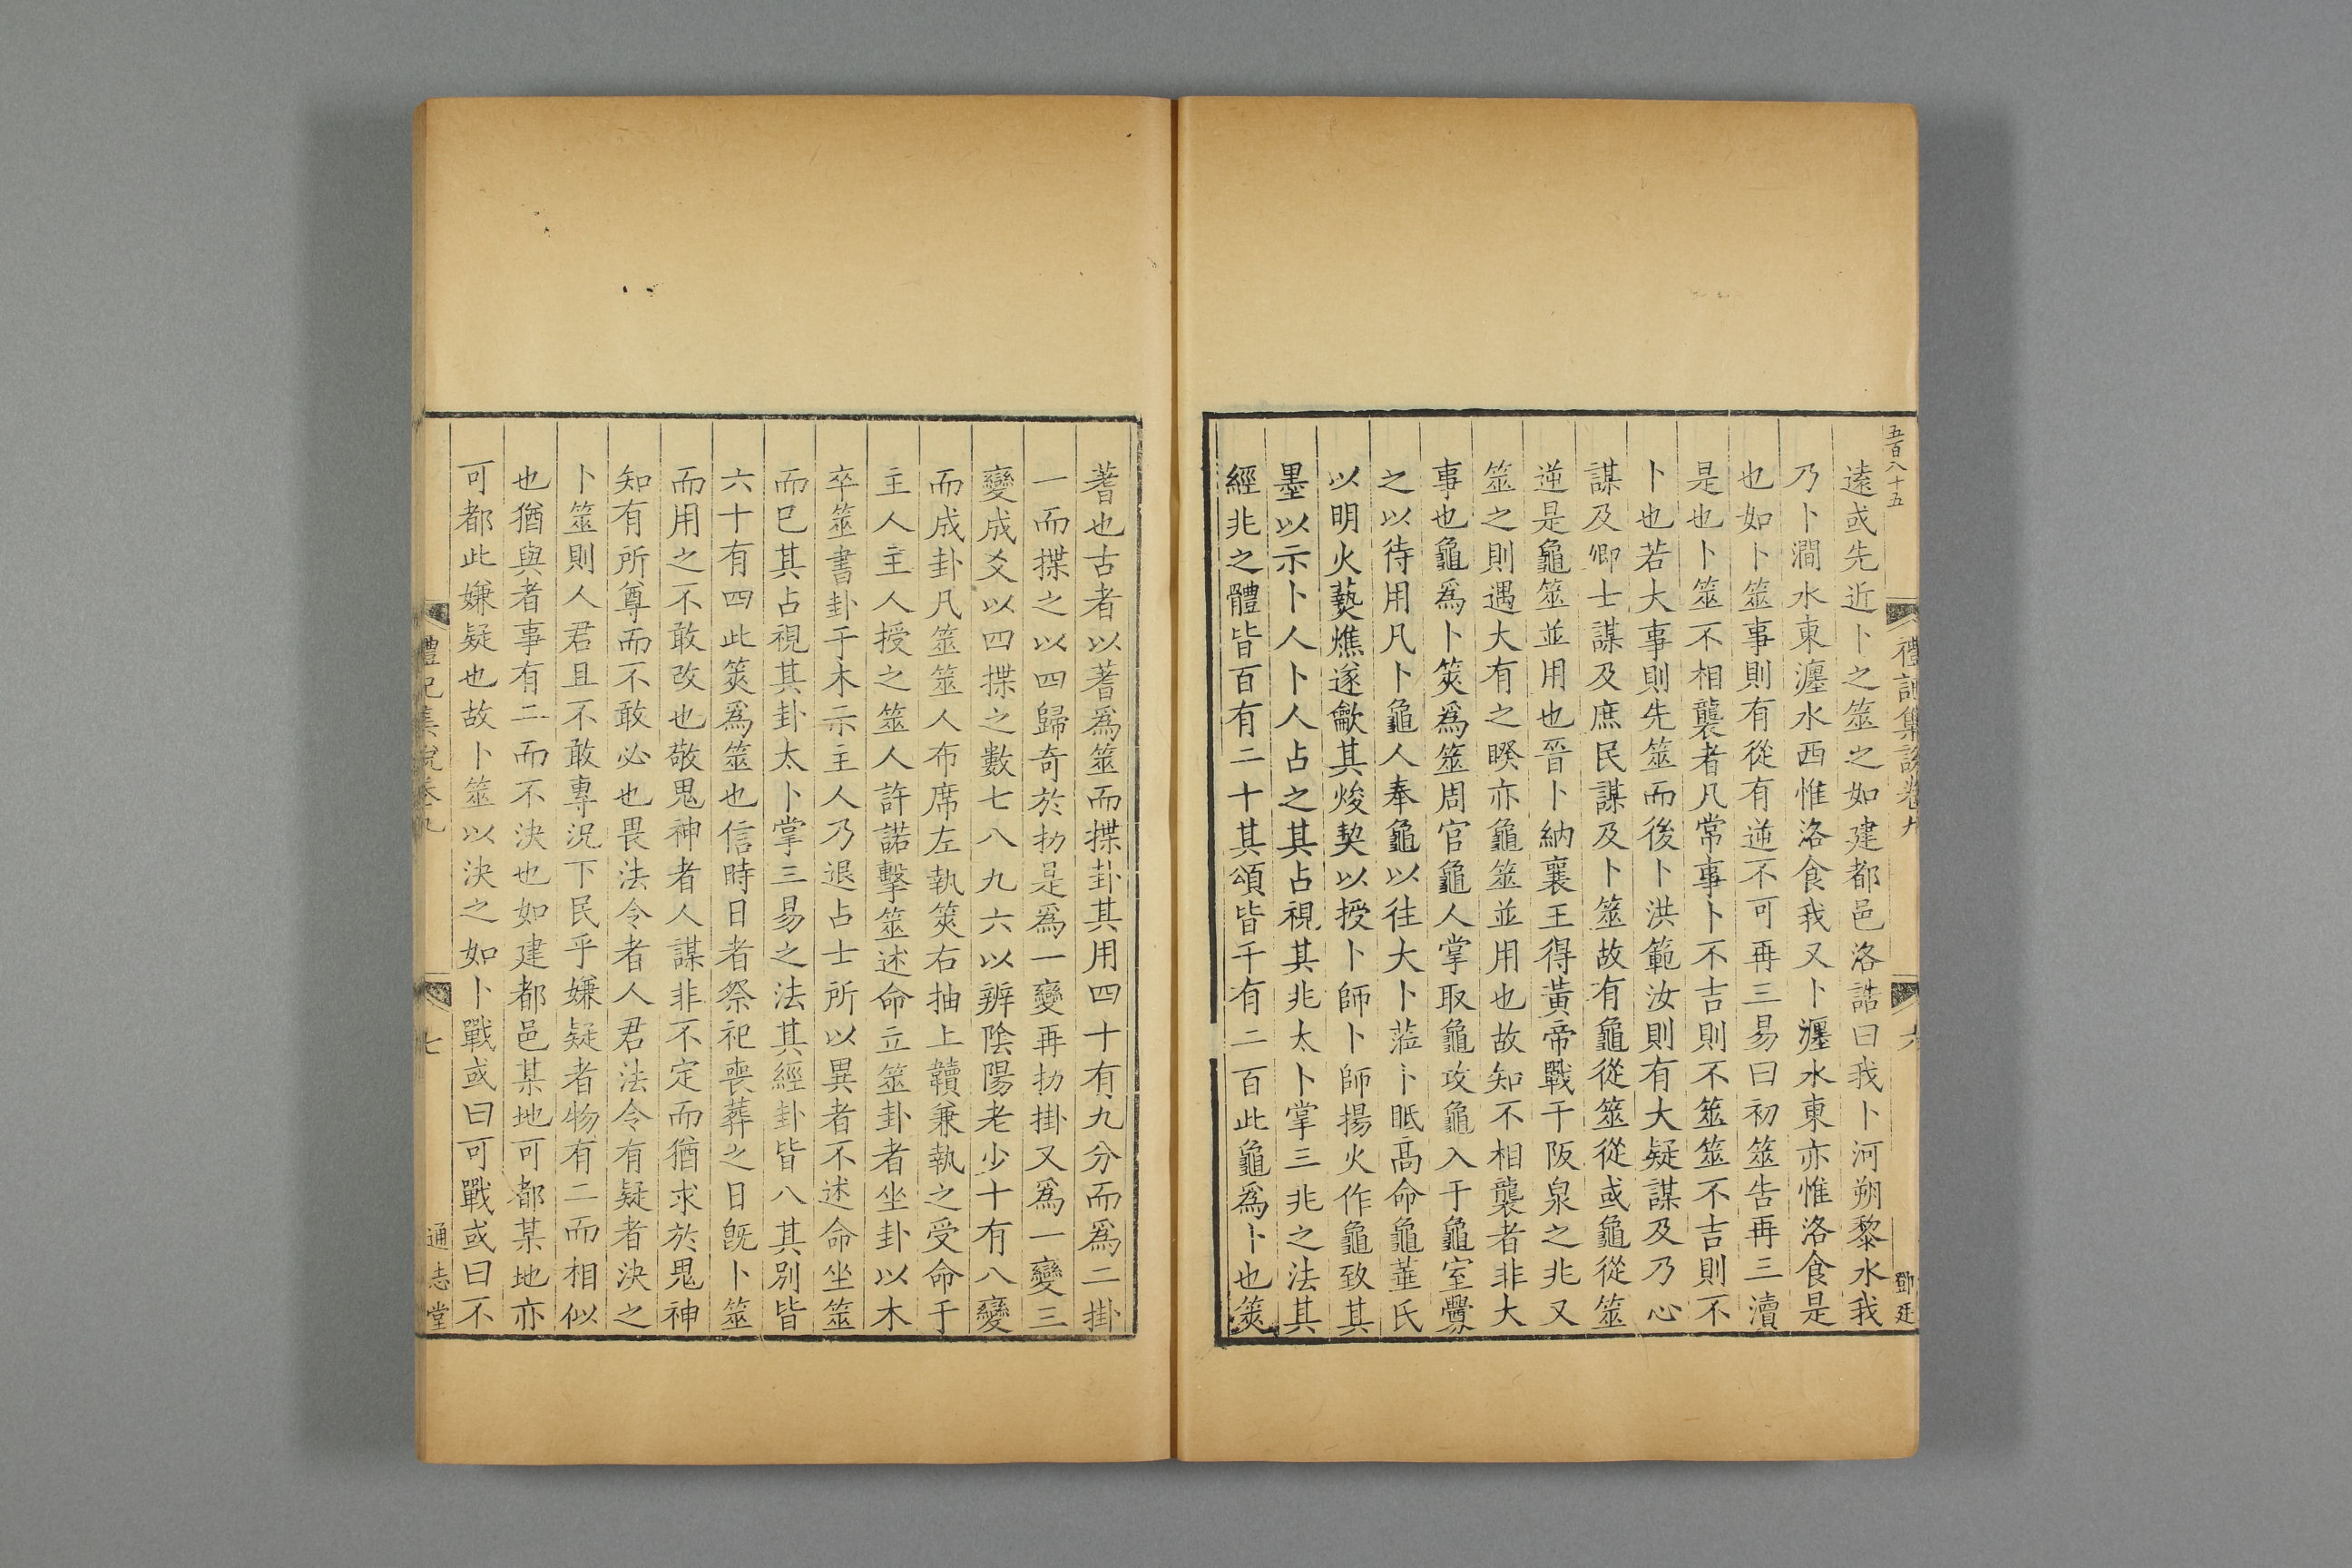 五百八十五
禮記集說卷九
六
鄧廷
遠或先近卜之筮之如建都邑洛誥曰我卜河朔黎水我
乃卜澗水東瀍水西惟洛食我又卜瀍水東亦惟洛食是
也如卜筮事則有從有逆不可再三易曰初筮告再三瀆
是也卜筮不相襲者凡常事卜不吉則不筮筮不吉則不
卜也若大事則先筮而後卜洪範汝則有大疑謀及乃心
謀及卿士謀及庶民謀及卜筮故有龜從筮從或龜從筮
逆是龜筮並用也晉卜納襄王得黃帝戰于阪泉之兆又
筮之則遇大有之睽亦龜筮並用也故知不相襲者非大
事也龜爲卜筴爲筮周官龜人掌取龜攻龜入于龜室釁
之以待用凡卜龜人奉龜以往大卜蒞卜眡高命龜菙氏
以明火爇燋遂龡其焌契以授卜師卜師揚火作龜致其
墨以示卜人卜人占之其占視其兆太卜掌三兆之法其
經兆之體皆百有二十其頌皆千有二百此龜爲卜也筴
蓍也古者以蓍爲筮而揲卦其用四十有九分而爲二掛
一而揲之以四歸奇於扐是爲一變再扐掛又爲一變三
變成爻以四揲之數七八九六以辨陰陽老少十有八變
而成卦凡筮筮人布席左執筴右抽上韇兼執之受命于
主人主人授之筮人許諾擊筮述命立筮卦者坐卦以木
卒筮書卦于木示主人乃退占士所以異者不述命坐筮
而已其占視其卦太卜掌三易之法其經卦皆八其別皆
六十有四此筴爲筮也信時日者祭祀喪葬之日旣卜筮
而用之不敢改也敬鬼神者人謀非不定而猶求於鬼神
知有所尊而不敢必也畏法令者人君法令有疑者決之
卜筮則人君且不敢專況下民乎嫌疑者物有二而相似
也猶與者事有二而不決也如建都邑某地可都某地亦
可都此嫌疑也故卜筮以決之如卜戰或曰可戰或曰不
禮記集說卷九
七
通志堂